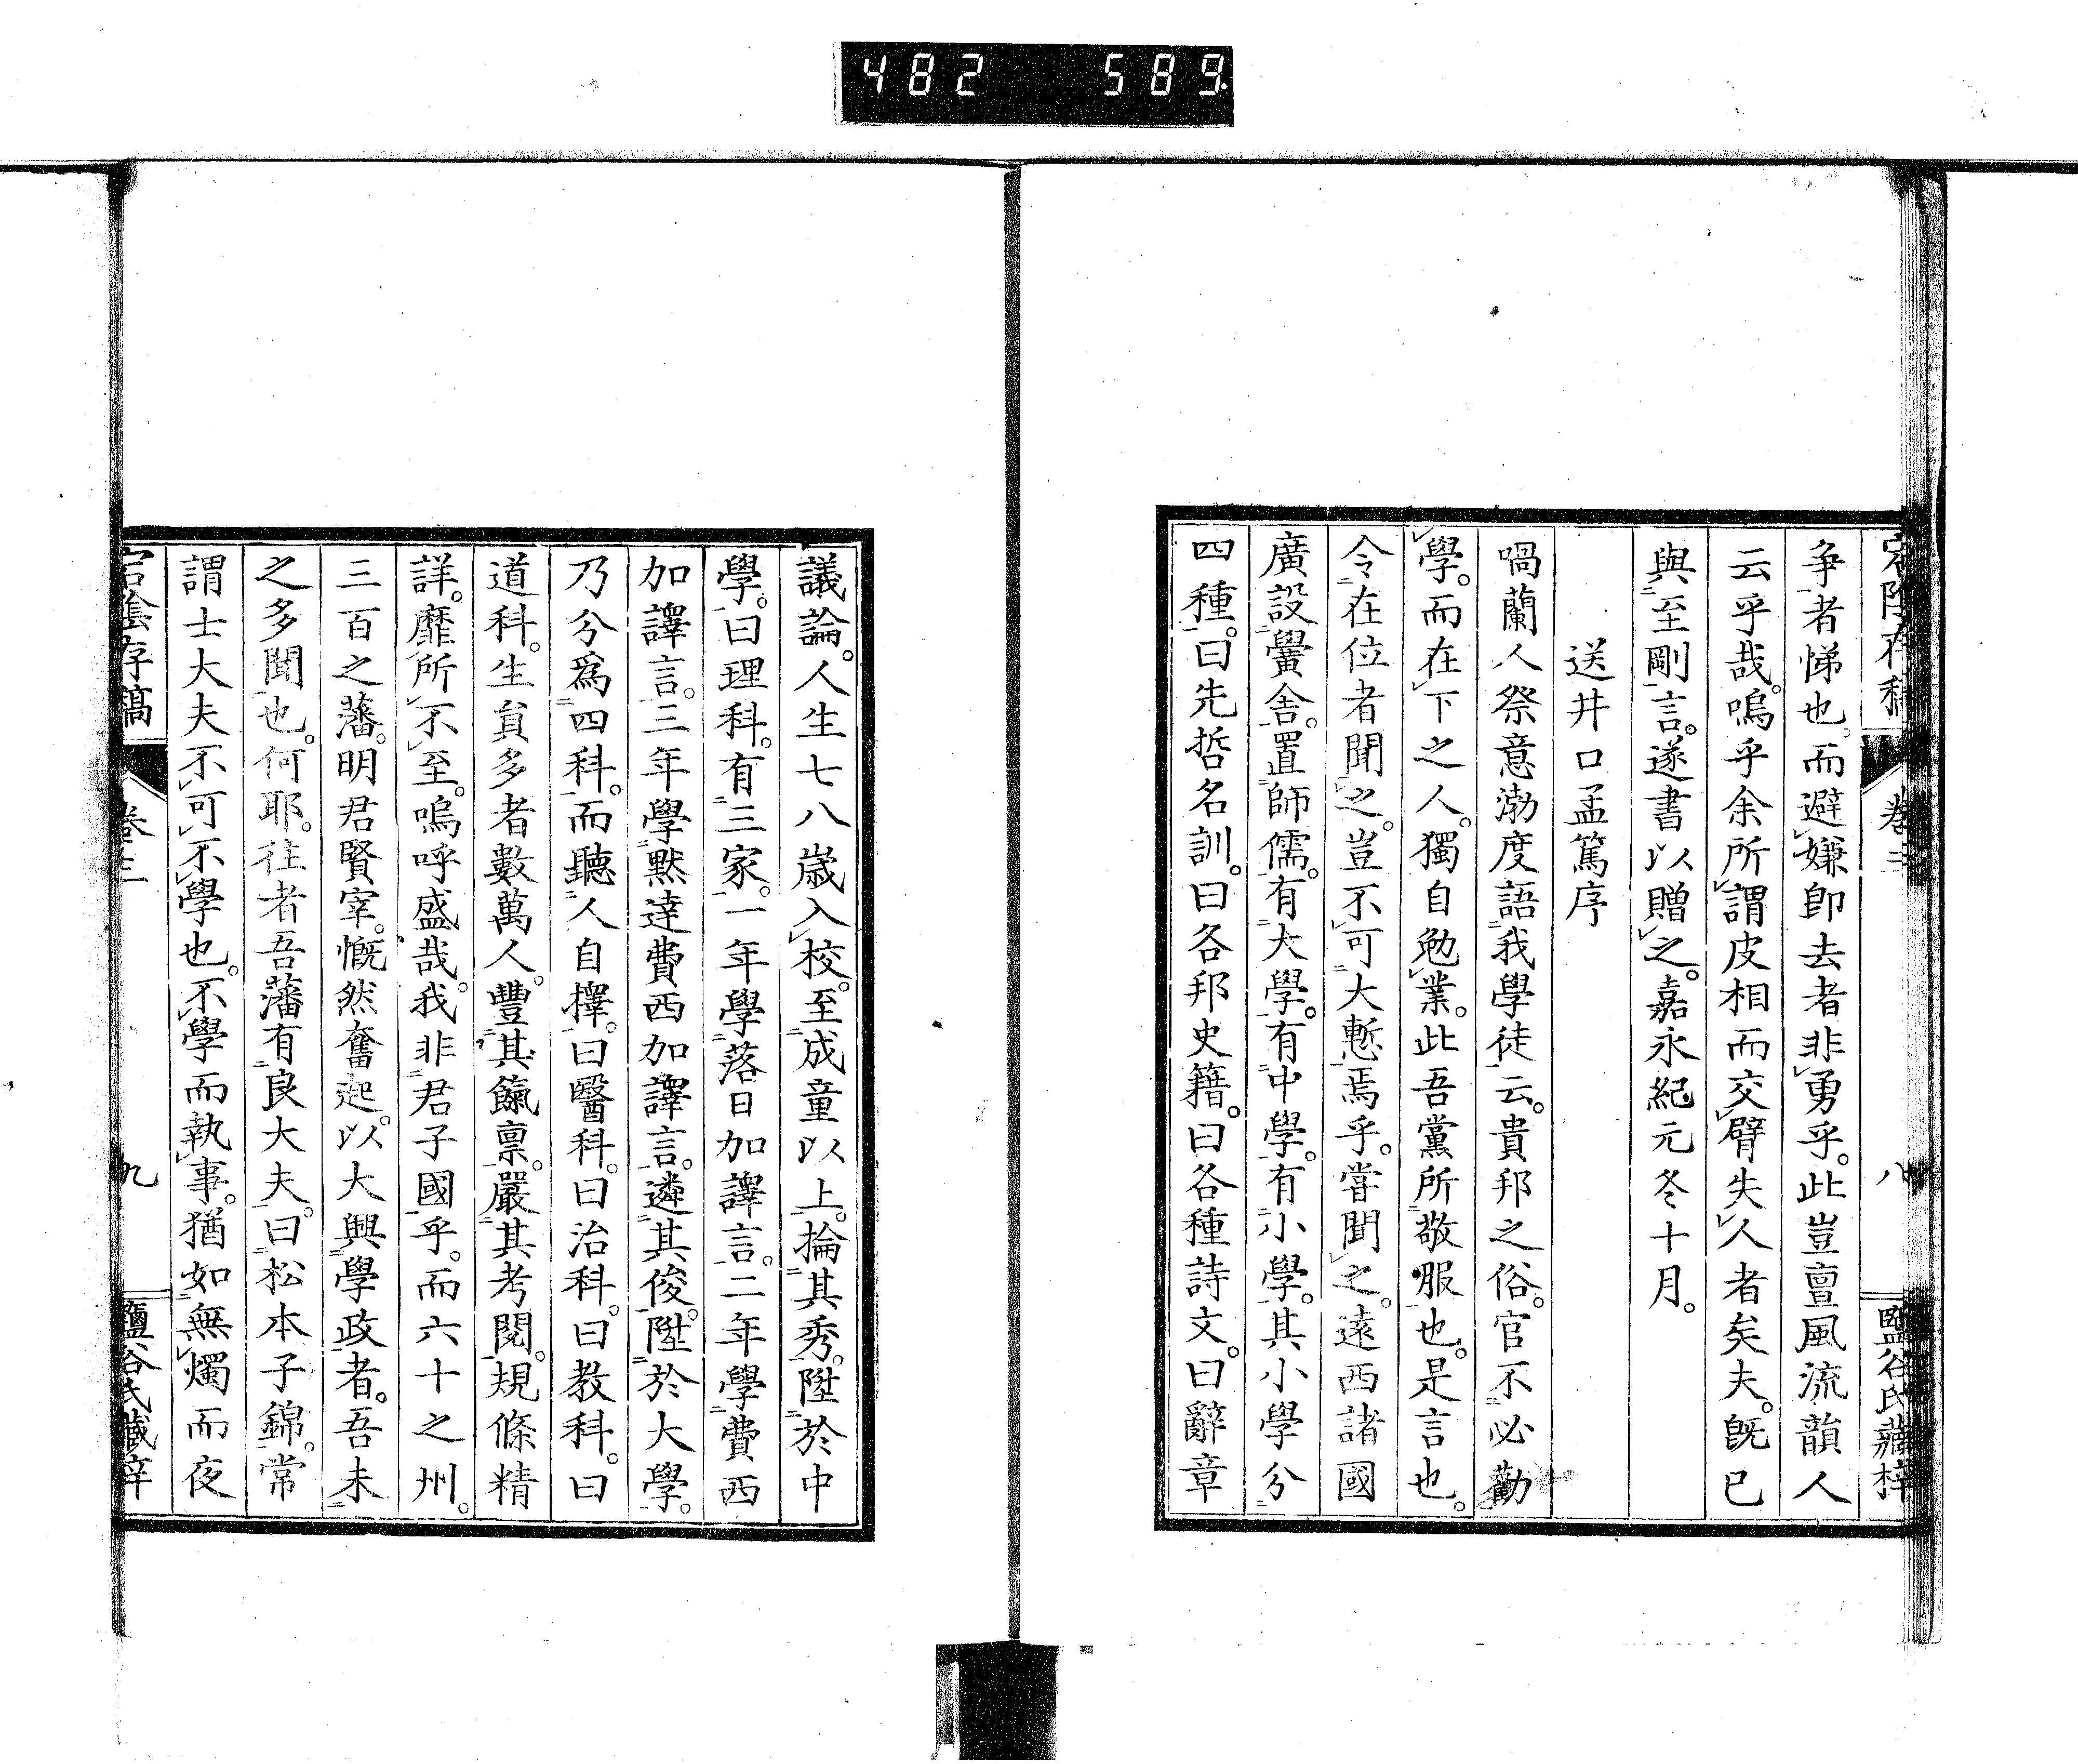 482 589
宕陰存稿 卷三 八 鹽谷氏藏梓
爭者悌也。而避嫌卽去者非勇乎。此豈亶風流韻人
云乎哉。嗚乎余所謂皮相而交臂失人者矣夫。旣已
與至剛言。遂書以贈之。嘉永紀元冬十月。
送井口孟篤序
喎蘭人祭意渤度語我學徒云。貴邦之俗。官不必勸
學。而在下之人。獨自勉業。此吾黨所敬服也。是言也。
令在位者聞之。豈不可大慙焉乎。嘗聞之。遠西諸國
廣設黌舍。置師儒。有大學。有中學。有小學。其小學分
四種。曰先哲名訓。曰各邦史籍。曰各種詩文。曰辭章
議論。人生七八歲入校。至成童以上。掄其秀。陞於中
學。曰理科。有三家。一年學落日加譯言。二年學費西
加譯言。三年學默達費西加譯言。遴其俊。陞於大學。
乃分爲四科。而聽人自擇。曰醫科。曰治科。曰教科。曰
道科。生員多者數萬人。豐其餼禀。嚴其考閱。規條精
詳。靡所不至。嗚呼盛哉。我非君子國乎。而六十之州。
三百之藩。明君賢宰。慨然奮起。以大興學政者。吾未
之多聞也。何耶。往者吾藩有良大夫。曰松本子錦。常
謂士大夫不可不學也。不學而執事。猶如無燭而夜
宕陰存稿 卷三 九 鹽谷氏藏梓